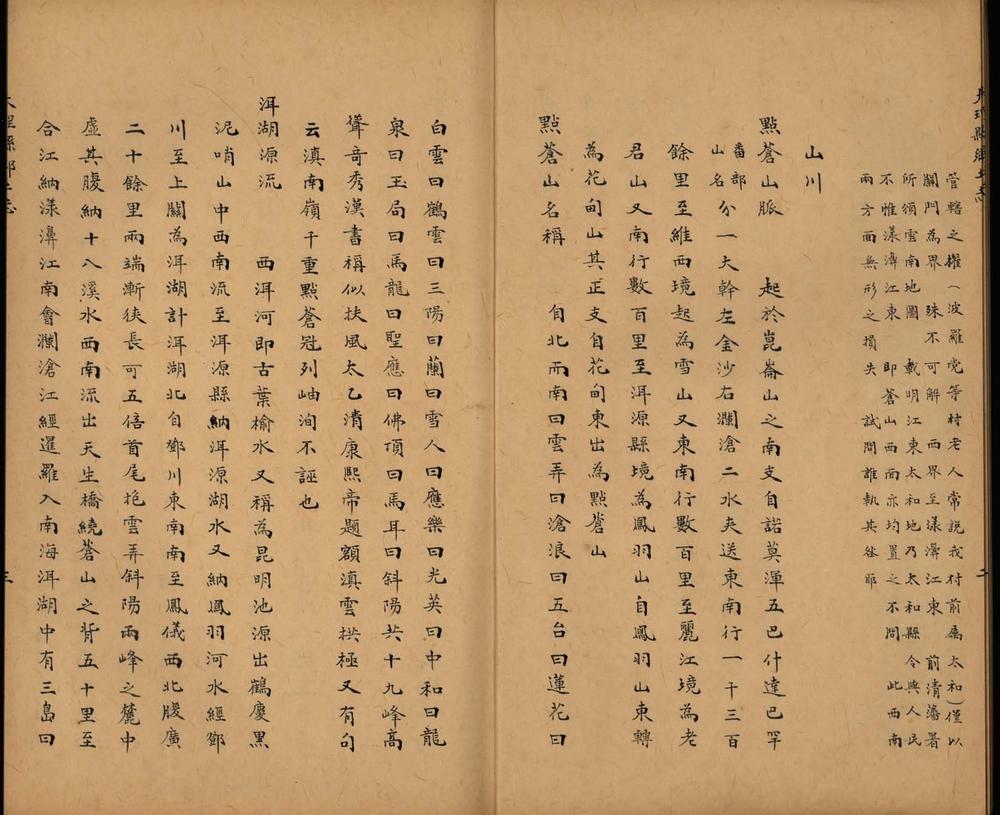 管轄之權（波羅党等村老人常説我村前屬太和）僅以
關門為界 殊不可解 西界至漾濞江東 前清藩署
所頒雲南地圖 載明江東太和地乃太和縣令與人民
不惟漾濞江東 即蒼山西面亦均置之不問 此西南
兩方面無形之損失 試問誰執其咎耶
山川
點蒼山脈 起於崑崙山之南支自諾莫渾五巴什達巴罕
番部山名分一大幹左金沙右瀾滄二水夾送東南行一千三百
餘里至維西境起為雪山又東南行數百里至麗江境為老
君山又南行數百里至洱源縣境為鳳羽山自鳳羽山東轉
為花甸山其正支自花甸東出為點蒼山
點蒼山名稱 自北而南曰雲弄曰滄浪曰五台曰蓮花曰
二
白雲曰鶴雲曰三陽曰蘭曰雪人曰應樂曰光英曰中和曰龍
泉曰玉局曰馬龍曰聖應曰佛頂曰馬耳曰斜陽共十九峰高
聳奇秀漢書稱似扶風太乙清康熙帝題額滇雲拱極又有句
云滇南嶺千重點蒼冠列岫洵不誣也
洱湖源流 西洱河即古葉榆水又稱為昆明池源出鶴慶黑
泥哨山中西南流至洱源縣納洱源湖水又納鳳羽河水經鄧
川至上關為洱湖計洱湖北自鄧川東南南至鳳儀西北腹廣
二十餘里兩端漸狹長可五倍首尾抱雲弄斜陽兩峰之麓中
虛其腹納十八溪水西南流出天生橋繞蒼山之背五十里至
合江納漾濞江南會瀾滄江經暹羅入南海洱湖中有三島曰
大理縣鄉土志
三